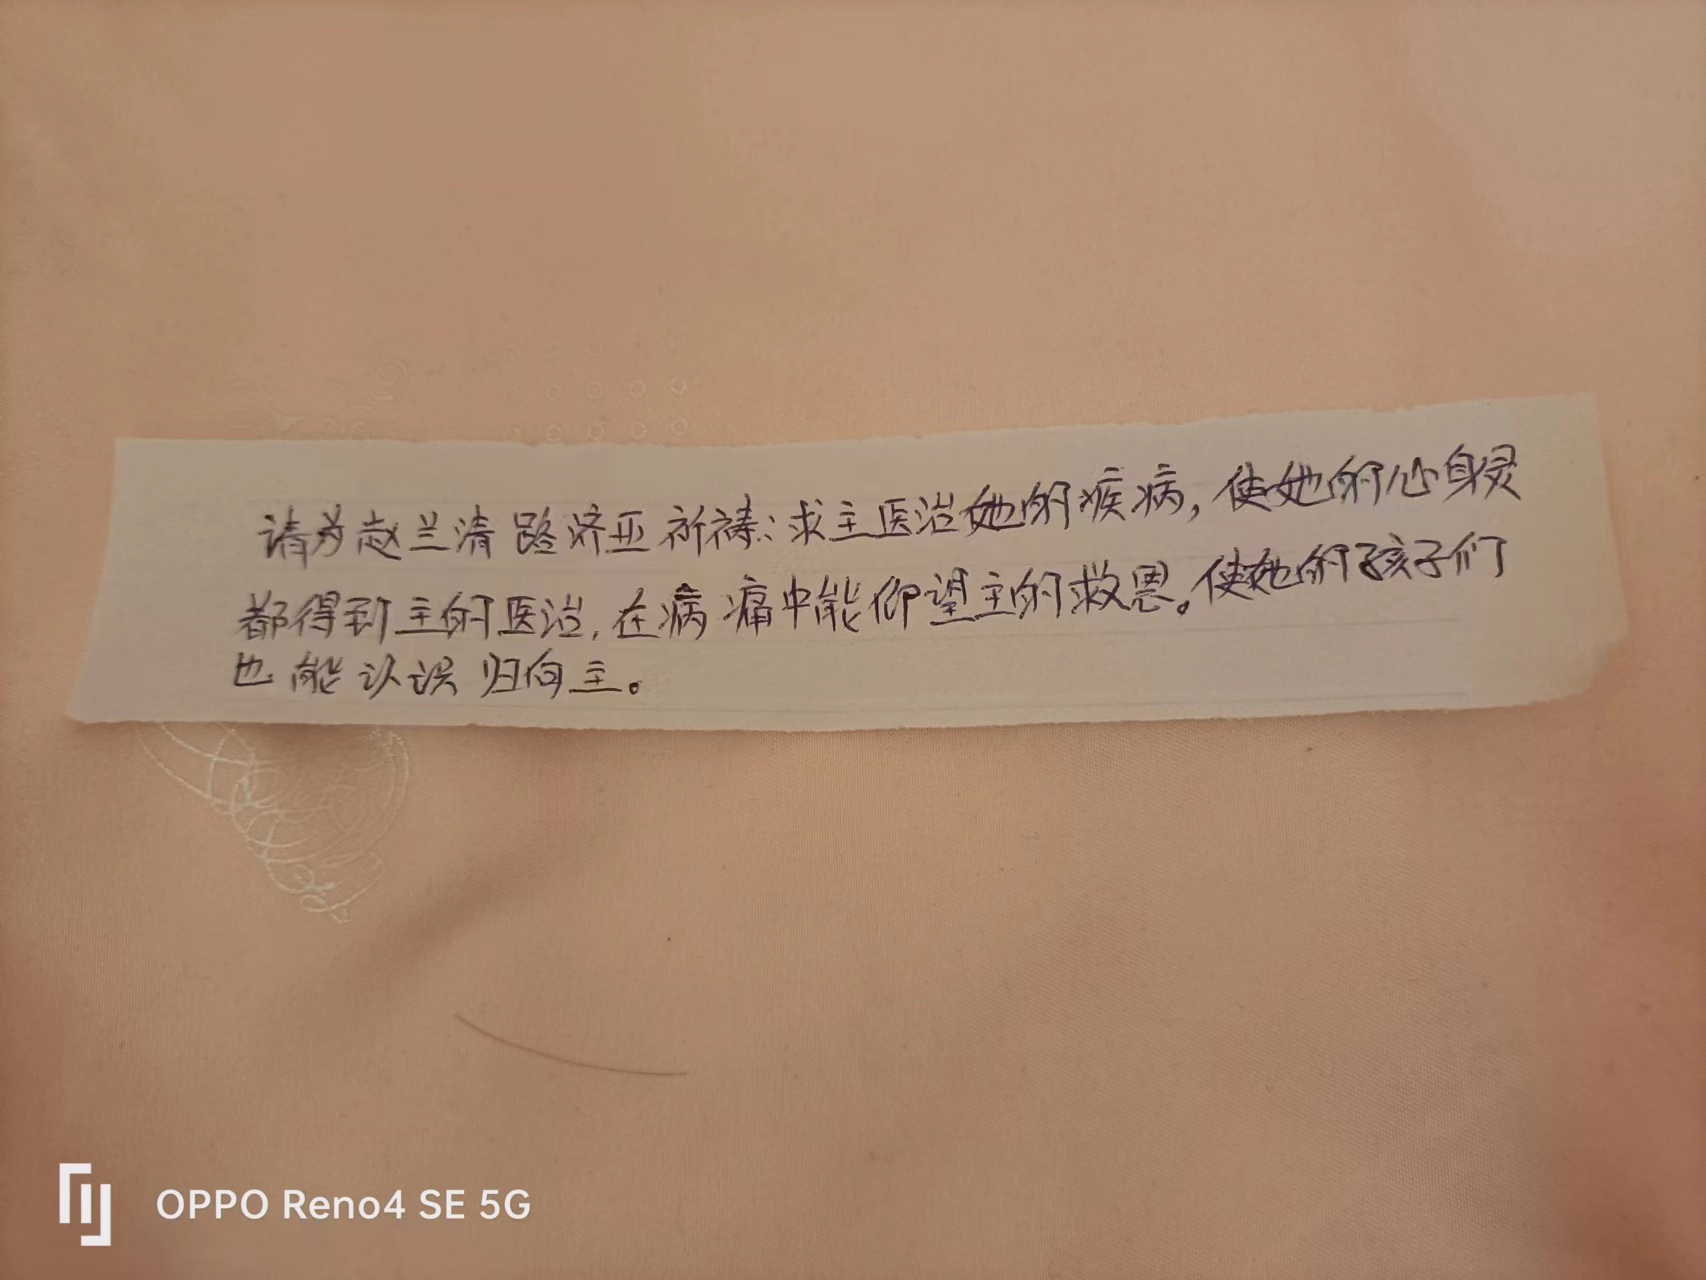 请为赵兰清路济亚祈祷：求主医治她的疾病，使她的心身灵
都得到主的医治，在病痛中能仰望主的救恩。使她的孩子们
也能认识归向主。
OPPO Reno4 SE 5G